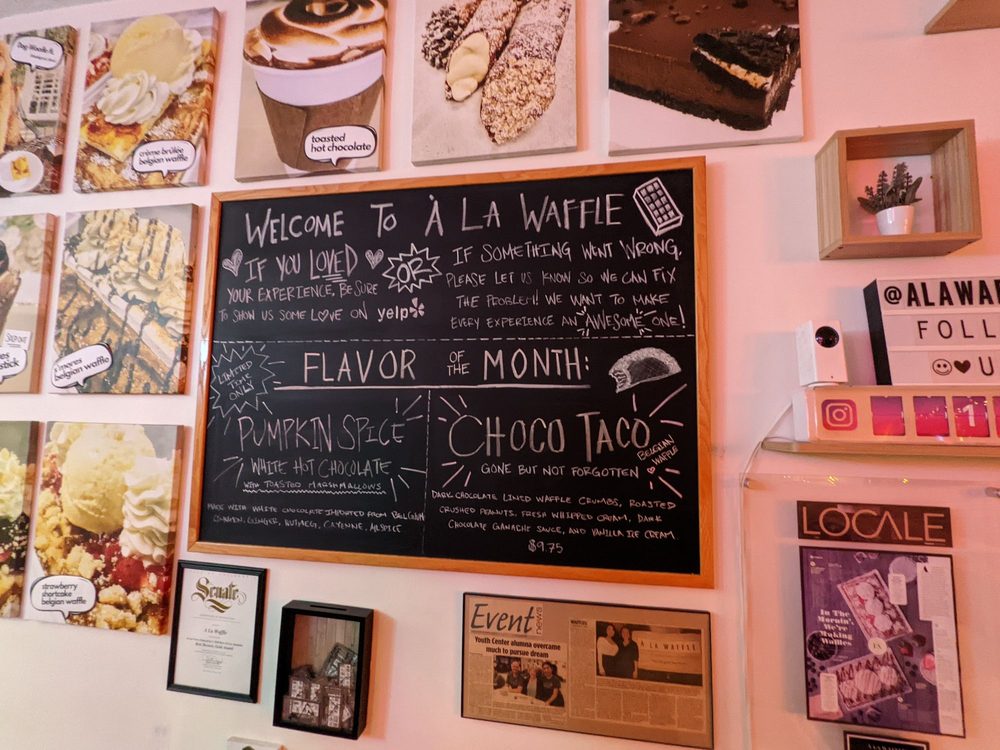 Dog Waffle It
crème brûlée
belgian waffle
toasted
hot chocolate
WELCOME TO À LA WAFFLE
IF YOU LOVED
YOUR EXPERIENCE, BE SURE
TO SHOW US SOME LOVE ON yelp
OR
IF SOMETHING WENT WRONG,
PLEASE LET US KNOW SO WE CAN FIX
THE PROBLEM! WE WANT TO MAKE
EVERY EXPERIENCE AN AWESOME ONE!
LIMITED
TIME
ONLY
FLAVOR OF THE MONTH:
PUMPKIN SPICE
WHITE HOT CHOCOLATE
WITH TOASTED MARSHMALLOWS
MADE WITH WHITE CHOCOLATE IMPORTED FROM BELGIUM
GINGER, NUTMEG, CAYENNE, ALLSPICE
CHOCO TACO
BELGIAN
WAFFLE
GONE BUT NOT FORGOTTEN
DARK CHOCOLATE LINED WAFFLE CRUMBS, ROASTED
CRUSHED PEANUTS, FRESH WHIPPED CREAM, DARK
CHOCOLATE GANACHE SAUCE, AND VANILLA ICE CREAM.
$9.75
s'mores
belgian waffle
strawberry
shortcake
belgian waffle
@ALAWA
FOLL
U
1
Senate
A La Waffle
Event news
Youth Center alumna overcame
much to pursue dream
A LA WAFFLE
LOCALE
In The
Mornin',
We're
Making
Waffles